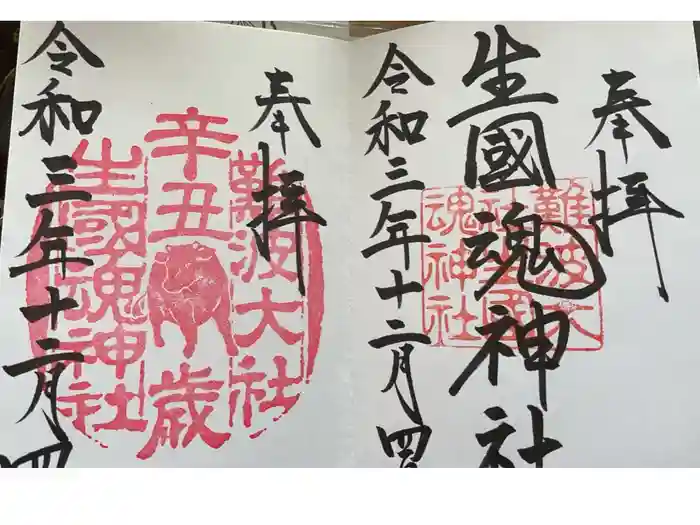 奉拝
難波大
社生國
魂神社
生國魂神社
令和三年十二月四
奉拝
難波大社
辛丑歳
生國魂神社
令和三年十二月四